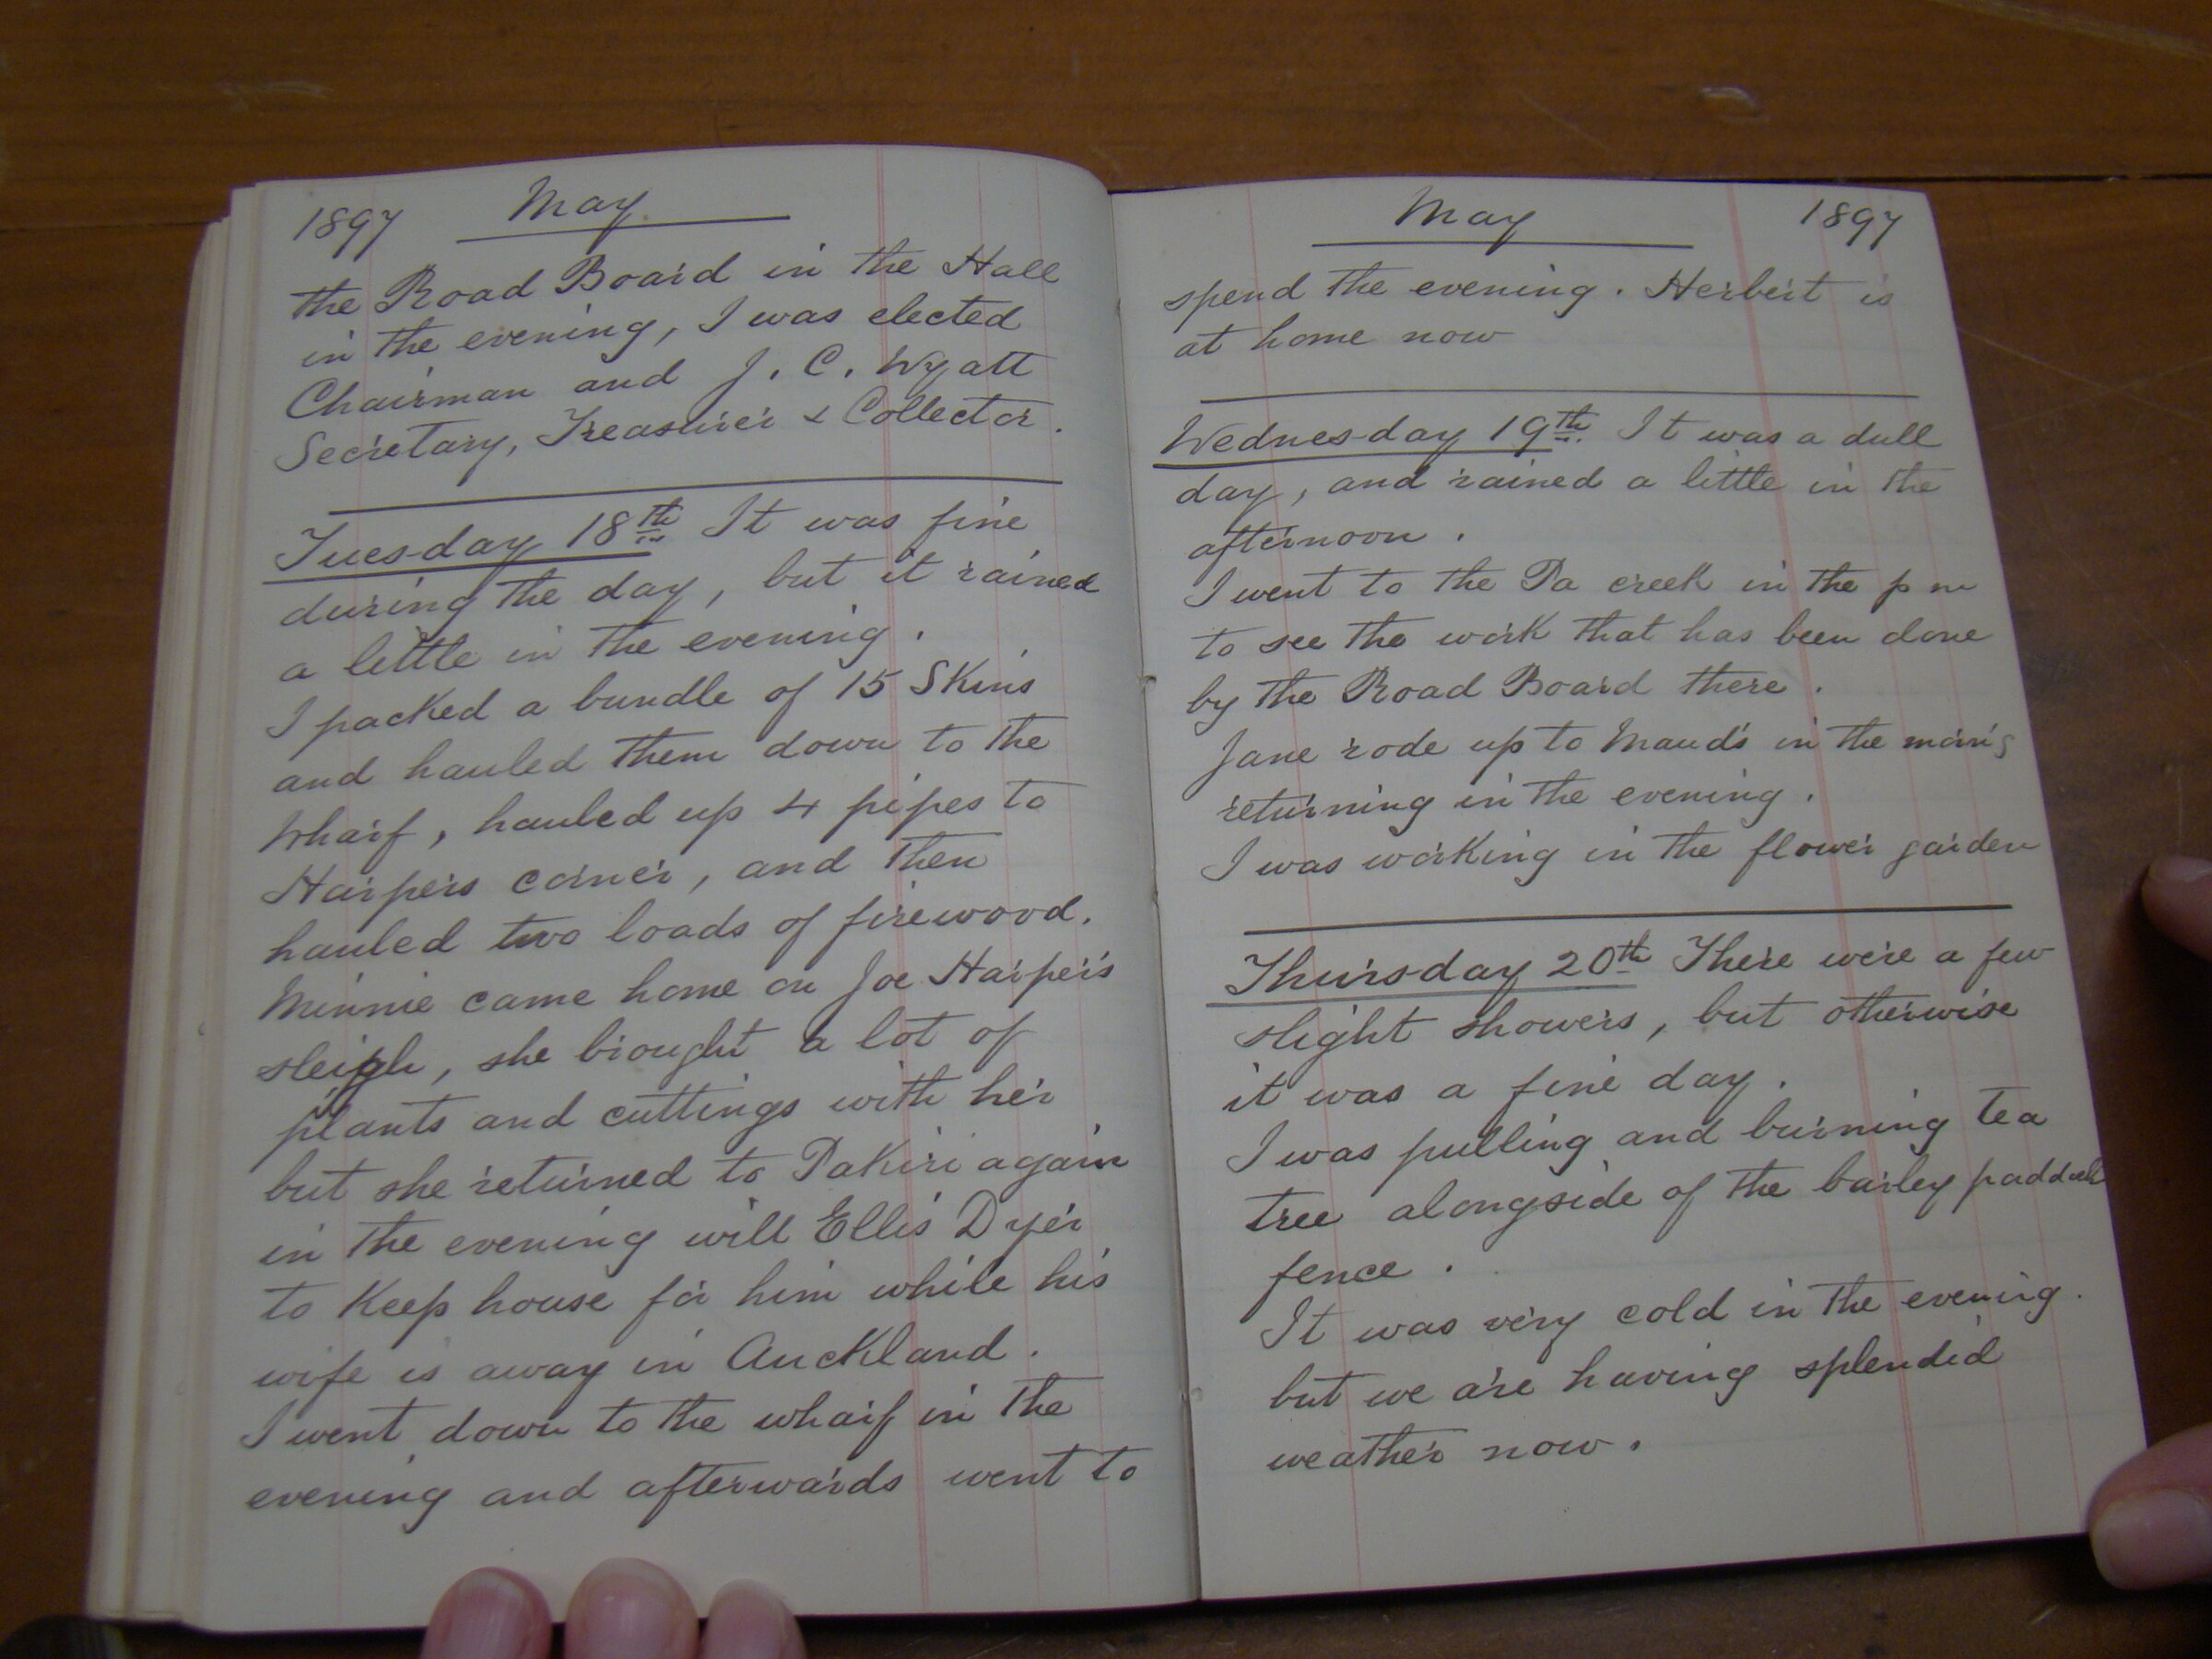 1897 May
the Road Board in the Hall
in the evening, I was elected
Chairman and J. C. Wyatt
Secretary, Treasurer & Collector.
Tuesday 18th It was fine
during the day, but it rained
a little in the evening.
I packed a bundle of 15 Skins
and hauled them down to the
Wharf, hauled up 4 pipes to
Harpers corner, and then
hauled two loads of firewood.
Minnie came home on Joe Harper's
sleigh, she brought a lot of
plants and cuttings with her
but she returned to Pakiri again
in the evening will Ellis Dyer
to Keep house for him while his
wife is away in Auckland.
I went down to the wharf in the
evening and afterwards went to
May 1897
spend the evening. Herbert is
at home now
Wednesday 19th. It was a dull
day, and rained a little in the
afternoon.
I went to the Pa creek in the p m
to see the work that has been done
by the Road Board there.
Jane rode up to Maud's in the morn'g
returning in the evening.
I was working in the flower garden
Thursday 20th There were a few
slight showers, but otherwise
it was a fine day.
I was pulling and burning tea
tree alongside of the barley paddock
fence.
It was very cold in the evening.
but we are having splendid
weather now.